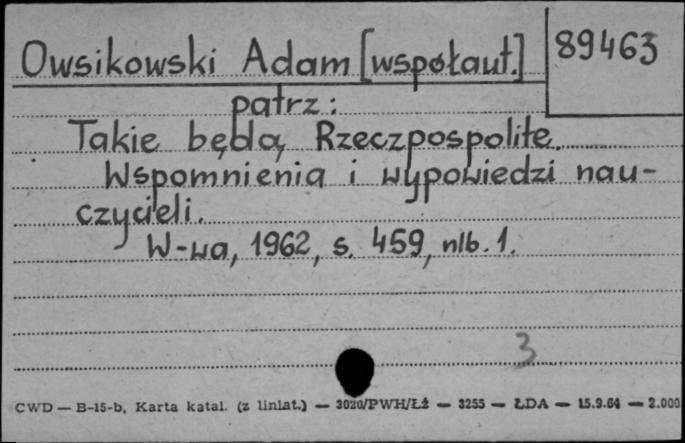 Owsikowski Adam [współaut.] 89463
patrz:
Takie będą Rzeczpospolite.
Wspomnienia i wypowiedzi nau-
czycieli.
W-wa, 1962, s. 459, nlb. 1.
3
CWD — B-15-b, Karta katal. (z liniat.) — 3020/PWH/ŁŻ — 3255 — ŁDA — 15.9.64 — 2.000